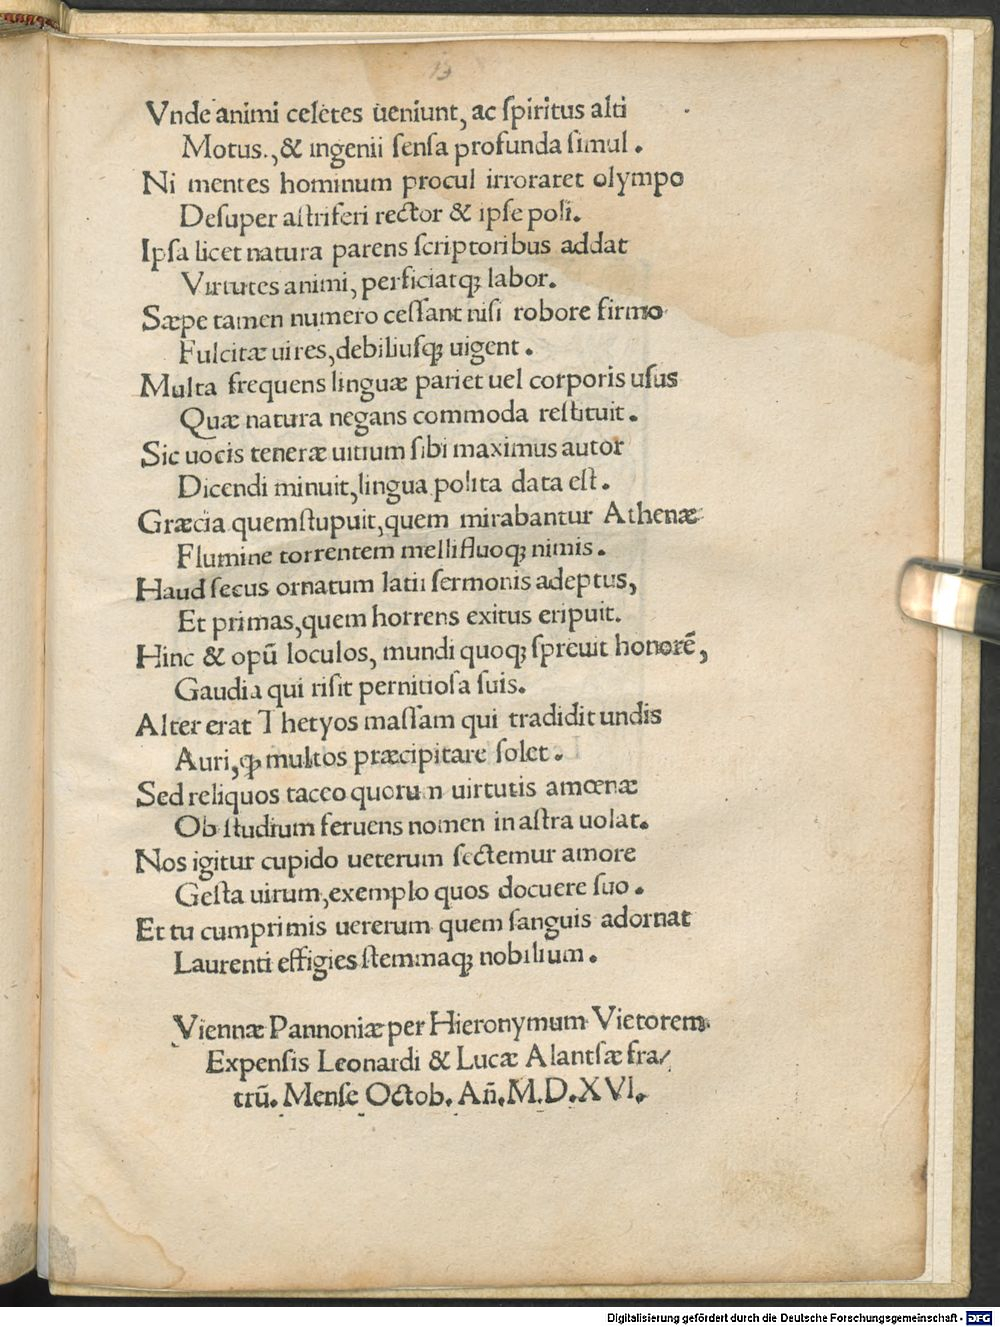 13
Vnde animi celetes ueniunt, ac ſpiritus alti
Motus., & ingenii ſenſa profunda ſimul.
Ni mentes hominum procul irroraret olympo
Deſuper aſtriferi rector & ipſe poli.
Ipſa licet natura parens ſcriptoribus addat
Virtutes animi, perficiatqꝫ labor.
Sæpe tamen numero ceſſant niſi robore firmo
Fulcitæ uires, debiliuſqꝫ uigent.
Multa frequens linguæ pariet uel corporis uſus
Quæ natura negans commoda reſtituit.
Sic uocis teneræ uitium ſibi maximus autor
Dicendi minuit, lingua polita data eſt.
Græcia quem ſtupuit, quem mirabantur Athenæ
Flumine torrentem mellifluoqꝫ nimis.
Haud ſecus ornatum latii ſermonis adeptus,
Et primas, quem horrens exitus eripuit.
Hinc & opū loculos, mundi quoqꝫ ſpreuit honorē,
Gaudia qui riſit pernitioſa ſuis.
Alter erat Thetyos maſſam qui tradidit undis
Auri, ꝙ multos præcipitare ſolet.
Sed reliquos taceo quorum uirtutis amœnæ
Ob ſtudium feruens nomen in aſtra uolat.
Nos igitur cupido ueterum ſectemur amore
Geſta uirum, exemplo quos docuere ſuo.
Et tu cumprimis uererum quem ſanguis adornat
Laurenti effigies ſtemmaqꝫ nobilium.
Viennæ Pannoniæ per Hieronymum Vietorem
Expenſis Leonardi & Lucæ Alantſæ fra/
trū. Menſe Octob. Añ. M.D.XVI.
Digitalisierung gefördert durch die Deutsche Forschungsgemeinschaft - DFG